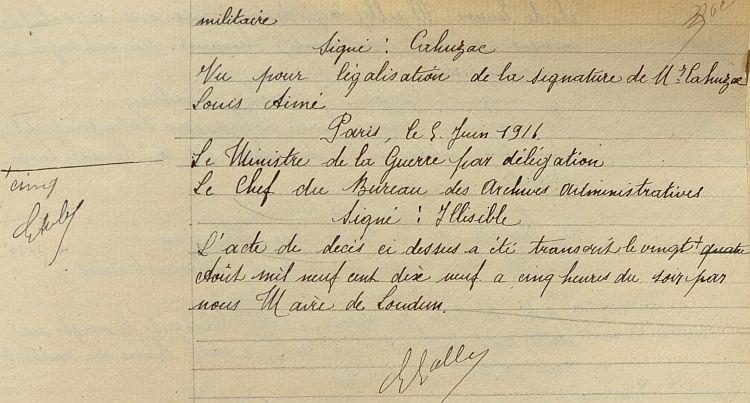 militaire
Signé : Cahuzac
Vu pour légalisation de la signature de Mr Cahuzac
Louis Aimé
Paris, le 5 Juin 1916
Le Ministre de la Guerre par délégation
Le Chef du Bureau des Archives Administratives
Signé : Illisible
L'acte de decis ci dessus a été transcrit le vingt + quatre
Août mil neuf cent dix neuf a cinq heures du soir par
nous Maire de Loudun.
+ cinq